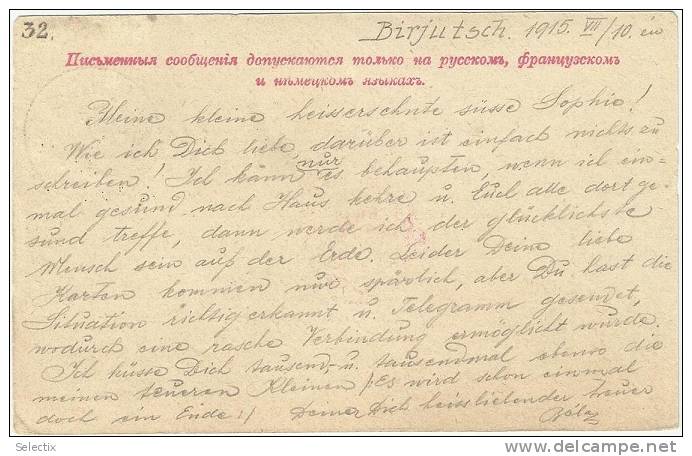 32.
Birjutsch. 1915. VII/10. én
Письменныя сообщенія допускаются только на русскомъ, французскомъ
и нѣмецкомъ языкахъ.
Meine kleine heissersehnte süsse Sophie!
Wie ich Dich liebe, darüber ist einfach nichts zu
schreiben! Ich kann nur es behaupten, wenn ich ein-
mal gesund nach Haus kehre u. Euch alle dort ge-
sund treffe, dann werde ich der glücklichste
Mensch sein auf der Erde. Leider Deine liebe
Karten kommen nur spärlich, aber Du hast die
Situation richtig erkannt u. Telegramm gesendet,
wodurch eine rasche Verbindung ermöglicht wurde.
Ich küsse Dich tausend- u. tausendmal ebenso die
meinen teueren Kleinen! Es wird schon einmal
doch ein Ende!! Deiner Dich heissliebender treuer
Béla
Selectix
www.delcampe.net